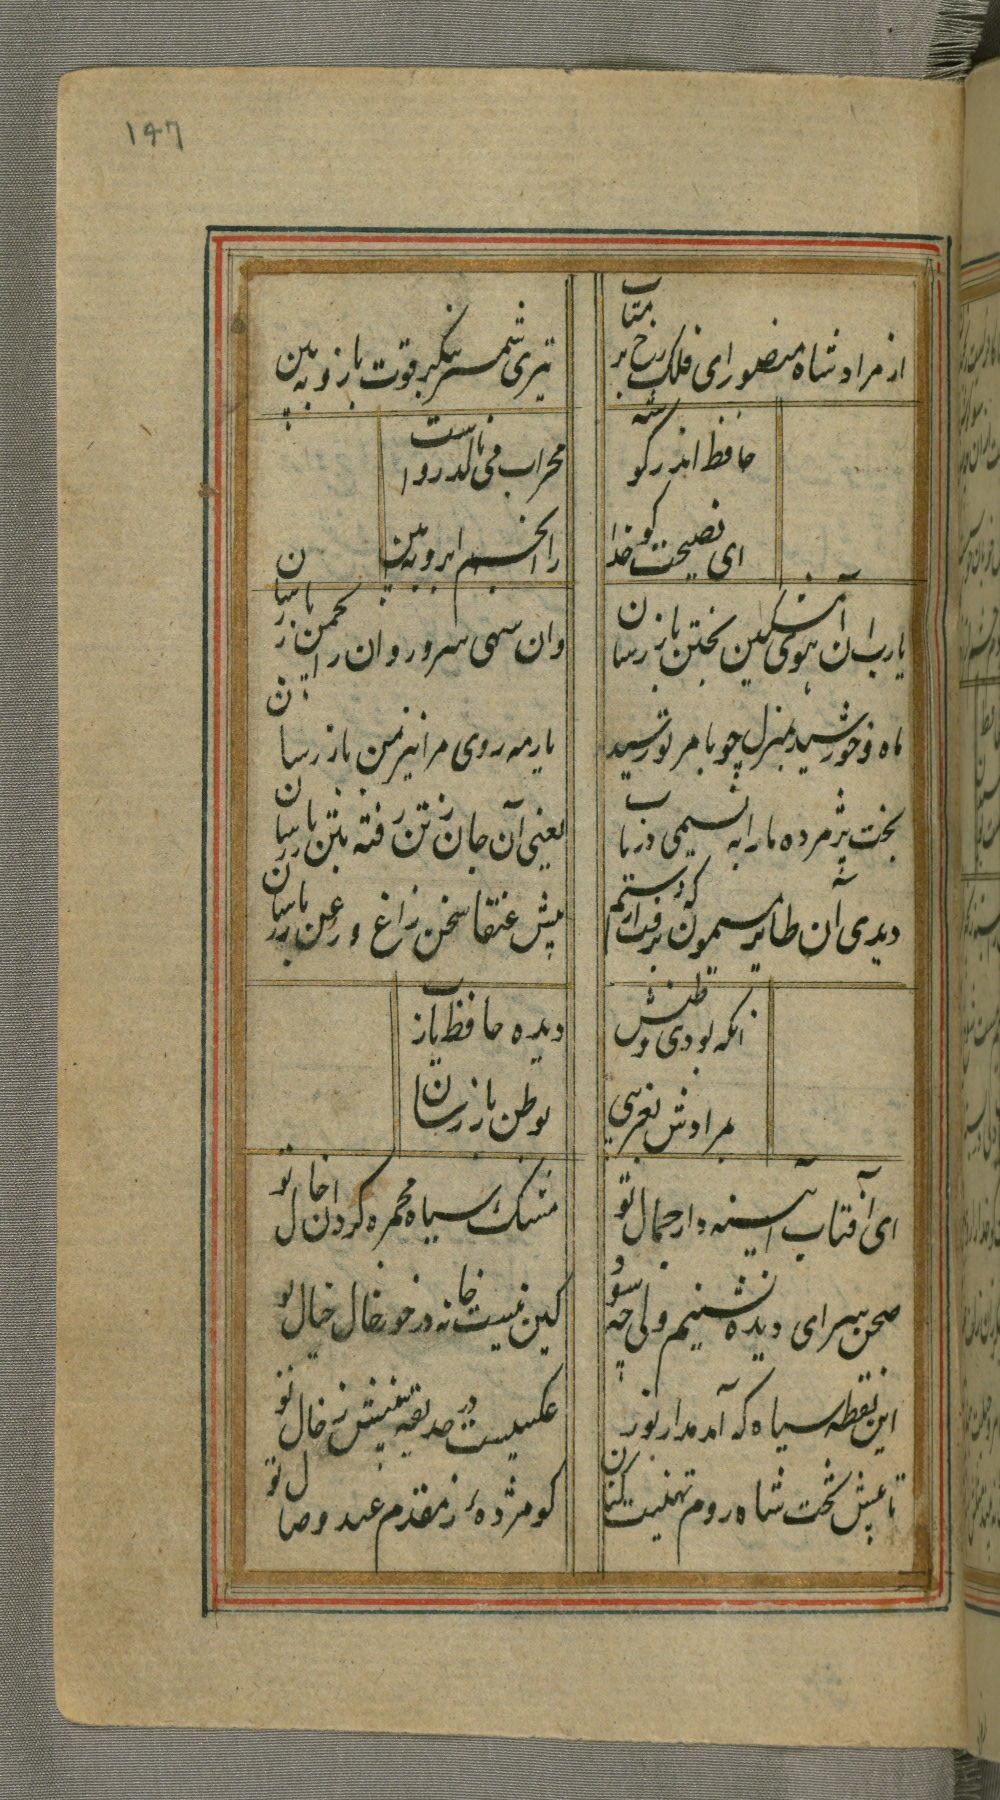 ۱۴۷
از مراد شاه منصور ای فلک رخ بر متاب
تیزی شمشیر بنگر قوت بازو به بین
حافظ اندر گوشه
محراب می نالد رواست
ای نصیحت گو خدا
را آنخم ابرو به بین
یا رب آن آهوی مشکین بختن باز رسان
وان سهی سرو روان را بچمن باز رسان
ماه و خورشید بمنزل چو بامر تو رسید
یار مه روی مرا نیز بمن باز رسان
بخت پژمرده ما را به نسیمی دریاب
یعنی آن جان ز تن رفته بتن باز رسان
دیدی آن طایر میمون
پیش عنقا سخن زاغ و زغن باز رسان
آنکه بودی وطنش
دیده حافظ یا رب
بمرادش ز غریبی
بوطن باز رسان
ای آفتاب آینه دار جمال تو
مشک سیاه مجمره گردان خال تو
صحن سرای دیده نشستیم ولی چه سود
کین نیست خانه در خور خال خیال تو
این نقطه سیاه که آمد مدار نور
عکسیست در حدیقه بینش ز خال تو
تا پیش تخت شاه روم تهنیت کنان
کو مژدهٔ ز مقدم عید وصال تو